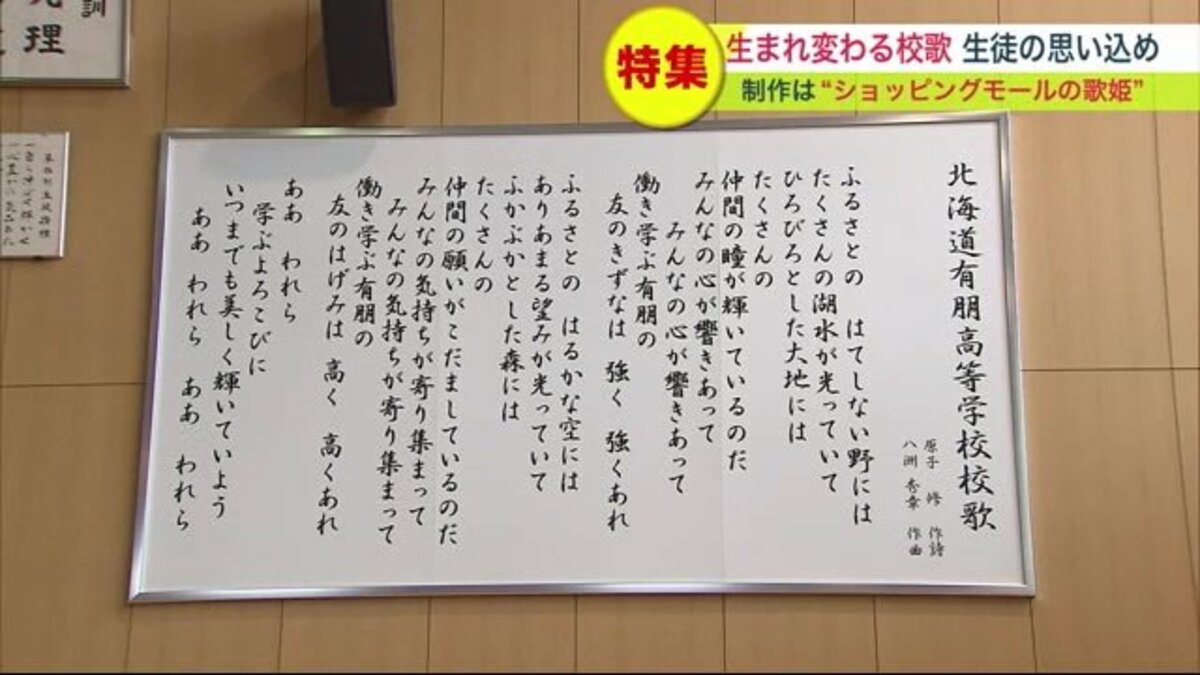 特集
生まれ変わる校歌 生徒の思い込め
制作は“ショッピングモールの歌姫”
訓
理
北海道有朋高等学校校歌
原子 修 作詩
八洲 秀章 作曲
ふるさとの はてしない野には
たくさんの湖水が光っていて
ひろびろとした大地には
たくさんの
仲間の瞳が輝いているのだ
みんなの心が響きあって
みんなの心が響きあって
働き学ぶ有朋の
友のきずなは 強く 強くあれ
ふるさとの はるかな空には
ありあまる望みが光っていて
ふかぶかとした森には
たくさんの
仲間の願いがこだましているのだ
みんなの気持ちが寄り集まって
みんなの気持ちが寄り集まって
働き学ぶ有朋の
友のはげみは 高く 高くあれ
ああ われら
学ぶよろこびに
いつまでも美しく輝いていよう
ああ われら ああ われら